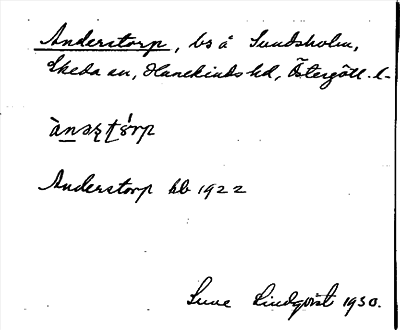 Anderstorp, bs å Sundsholm,
Ekeda sn, Hanekinds hd, Östergötl. l.
Anderstorp hb 1922
Sune Lindqvist 1930.